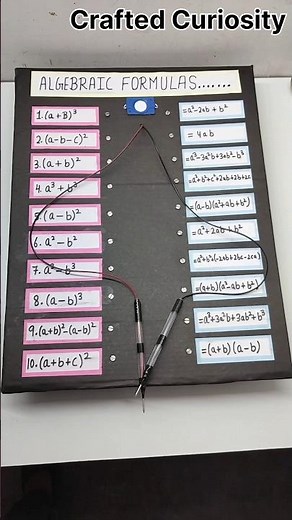 Crafted Curiosity
ALGEBRAIC FORMULAS.......
1. (a+B)³
2. (a-b-c)²
3. (a+b)²
4. a³+b³
5. (a-b)²
6. a²-b²
7. a³-b³
8. (a-b)³
9. (a+b)²-(a-b)²
10. (a+b+c)²
=a²-2ab+b²
=4ab
=a³-3a²b+3ab²-b³
=a²+b²+c²+2ab+2bc+2c
=(a-b)(a²+ab+b²)
=a²+2ab+b²
=(a+b)(a²-ab+b²)
=a³+3a²b+3ab²+b³
=(a+b)(a-b)